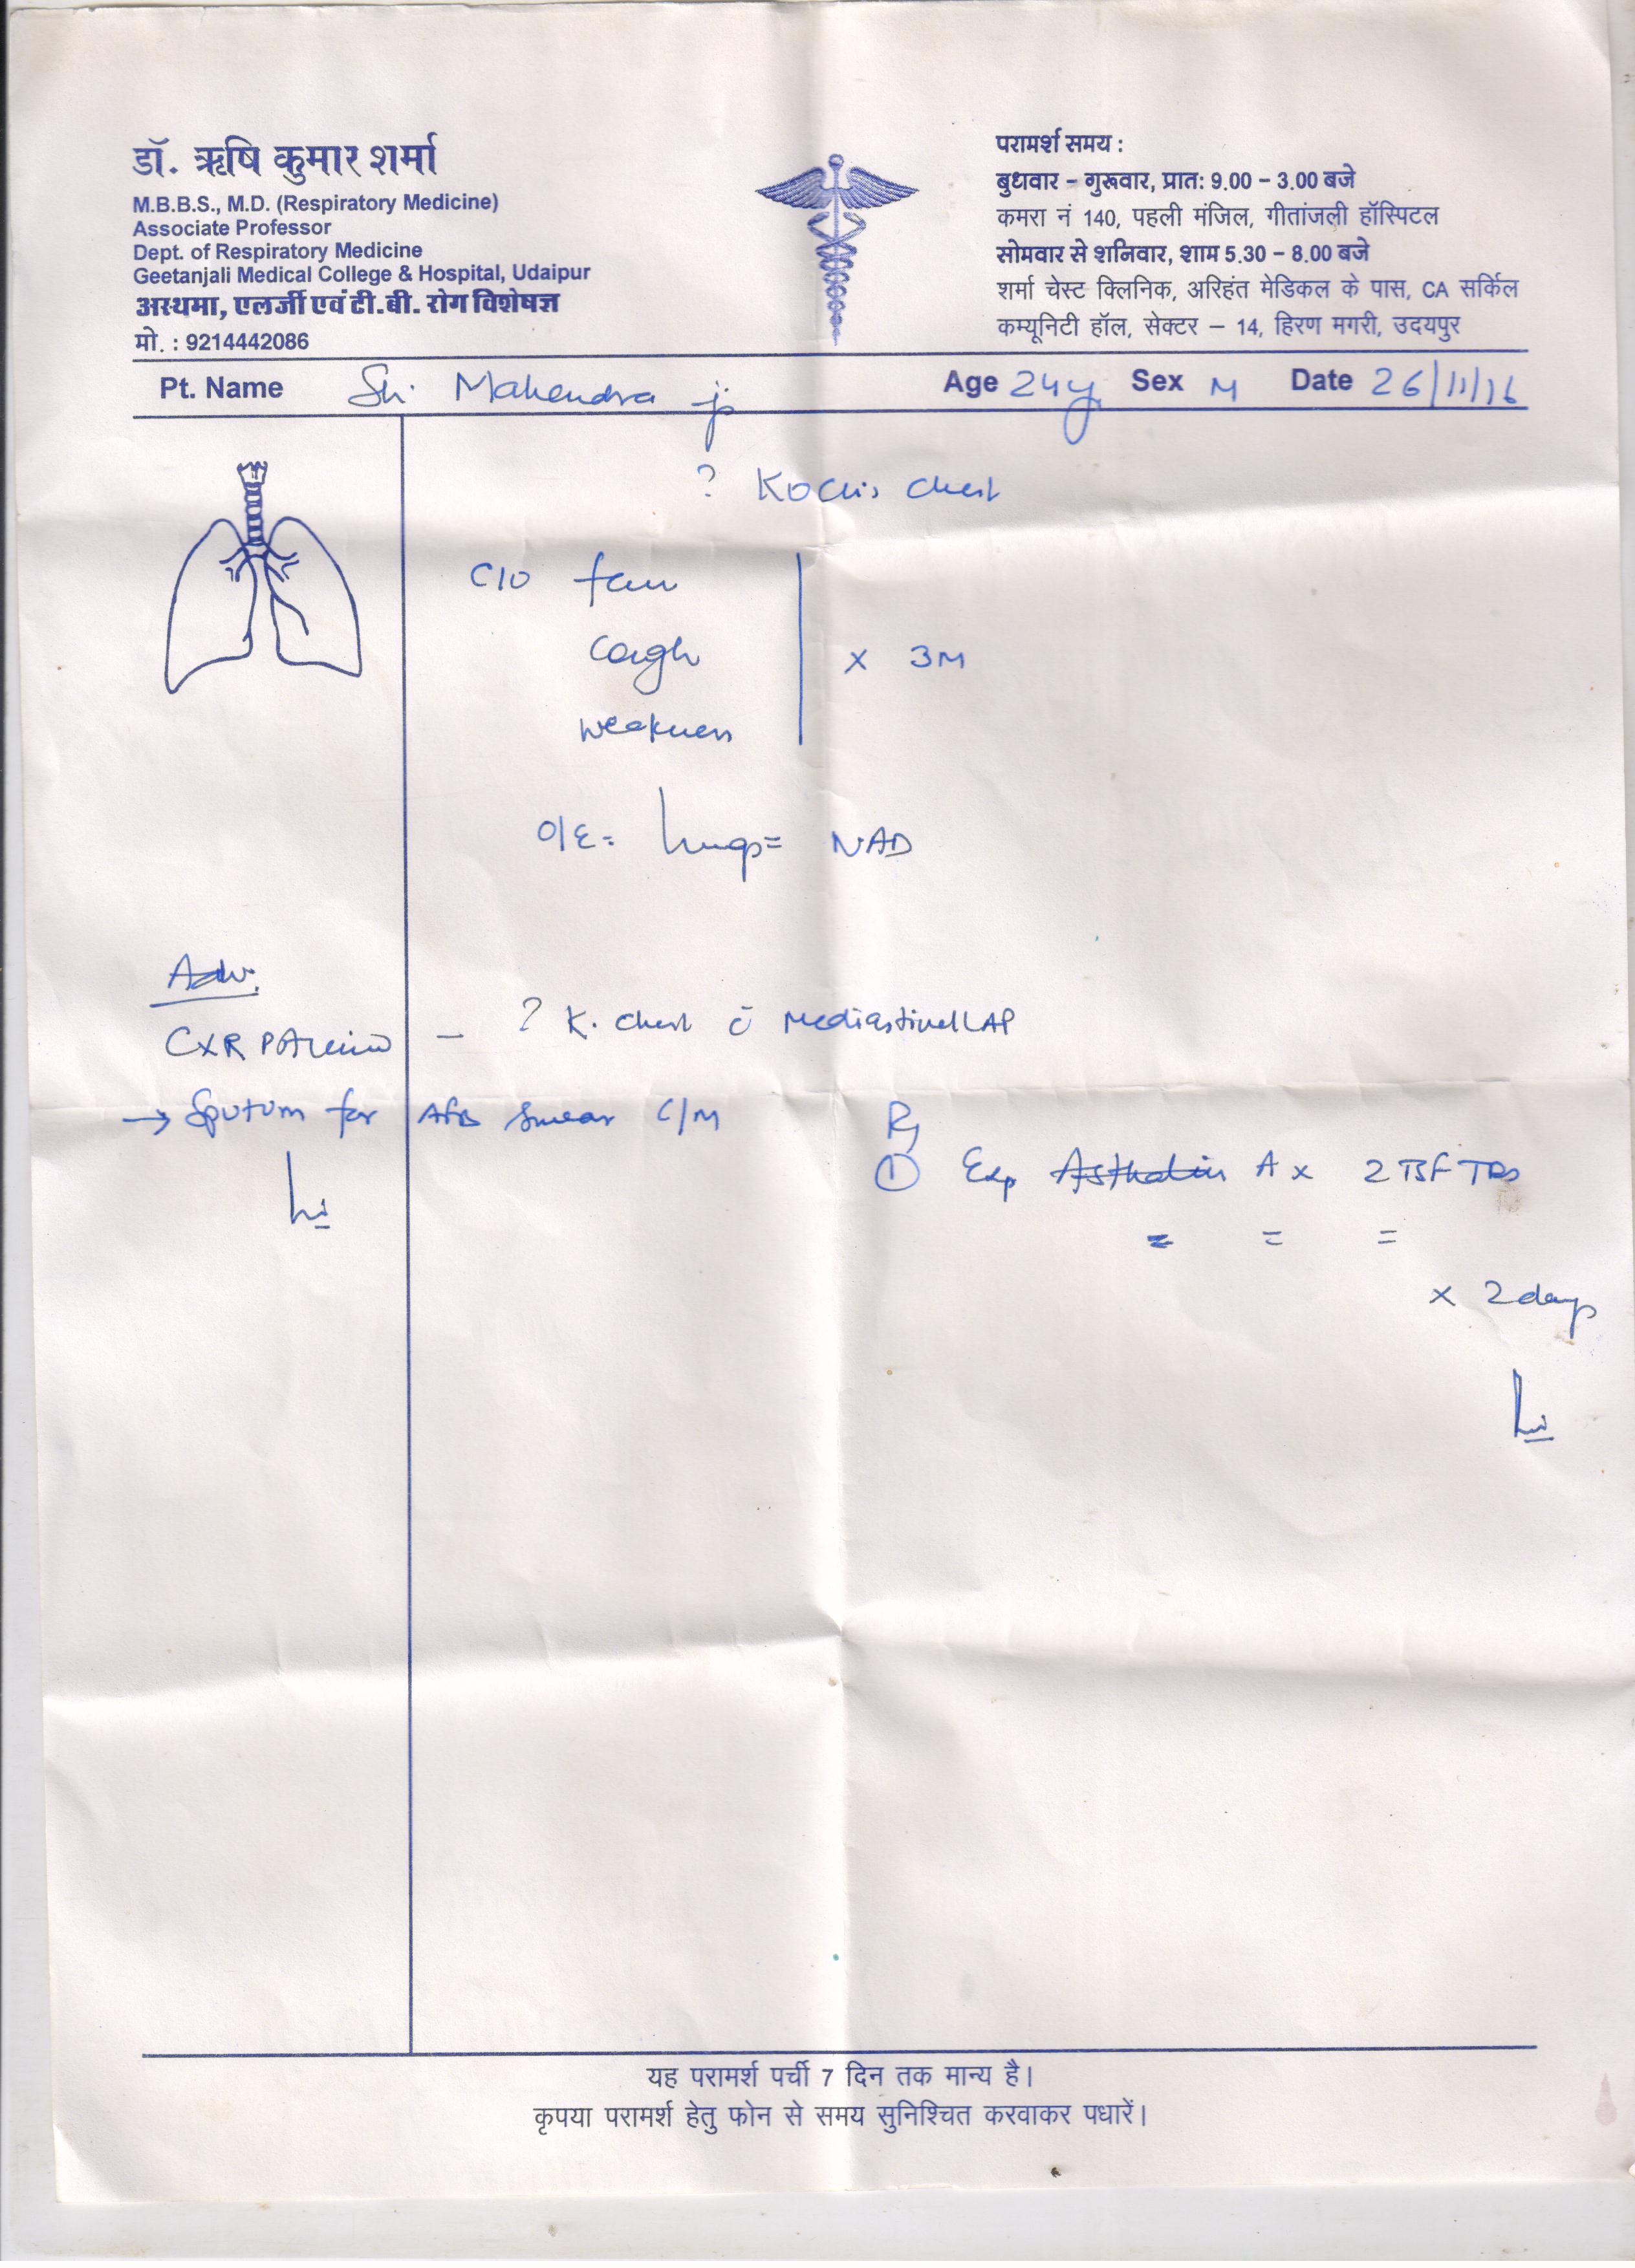 डॉ. ऋषि कुमार शर्मा
M.B.B.S., M.D. (Respiratory Medicine)
Associate Professor
Dept. of Respiratory Medicine
Geetanjali Medical College & Hospital, Udaipur
अस्थमा, एलर्जी एवं टी.बी. रोग विशेषज्ञ
मो. : 9214442086
परामर्श समय :
बुधवार - गुरूवार, प्रातः 9.00 - 3.00 बजे
कमरा नं 140, पहली मंजिल, गीतांजली हॉस्पिटल
सोमवार से शनिवार, शाम 5.30 - 8.00 बजे
शर्मा चेस्ट क्लिनिक, अरिहंत मेडिकल के पास, CA सर्किल
कम्यूनिटी हॉल, सेक्टर - 14, हिरण मगरी, उदयपुर
Pt. Name Sh. Mahendra ji Age 24y Sex M Date 26/11/16
? Koch's chest
C/O fever
cough
weakness
x 3M
O/E = Lungs = NAD
Adv.
CXR PA view - ? K. Chest c̄ Mediastinal LAP
→ Sputum for AFB smear C/M
Rx
① Exp Asthalin A x 2 TSF TDS
= = =
x 2 days
यह परामर्श पर्ची 7 दिन तक मान्य है।
कृपया परामर्श हेतु फोन से समय सुनिश्चित करवाकर पधारें।